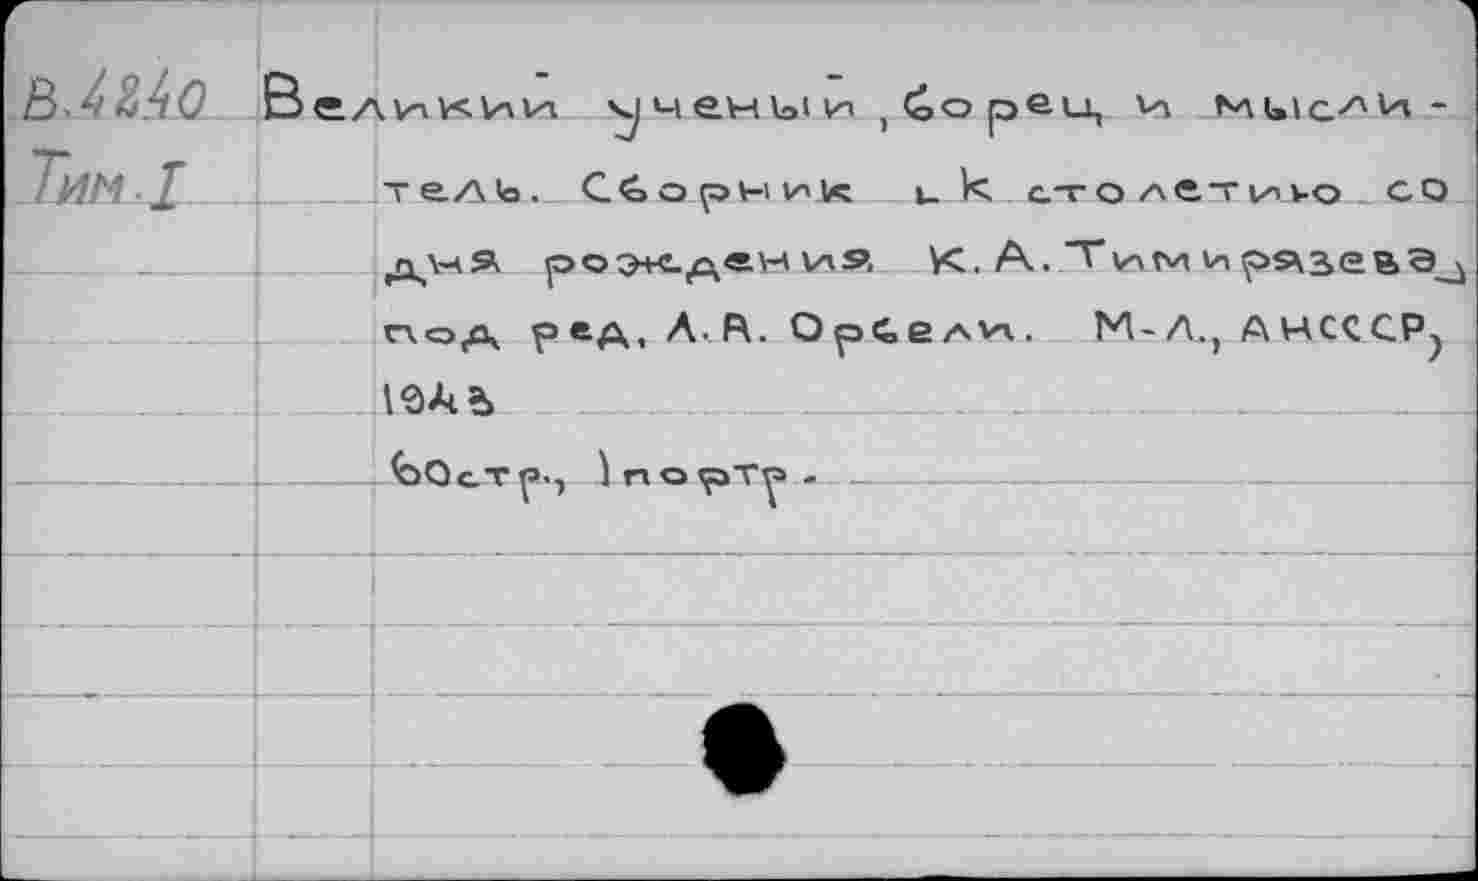 В.4240 Великий ученый, борец и мысли-
Тим.I тель. Сборник к столетию со
дня рождения К. А. Тимирязева,
под ред, Л. А. Орбели. М-Л., АНСССР,
1943
60стр., 1портр.